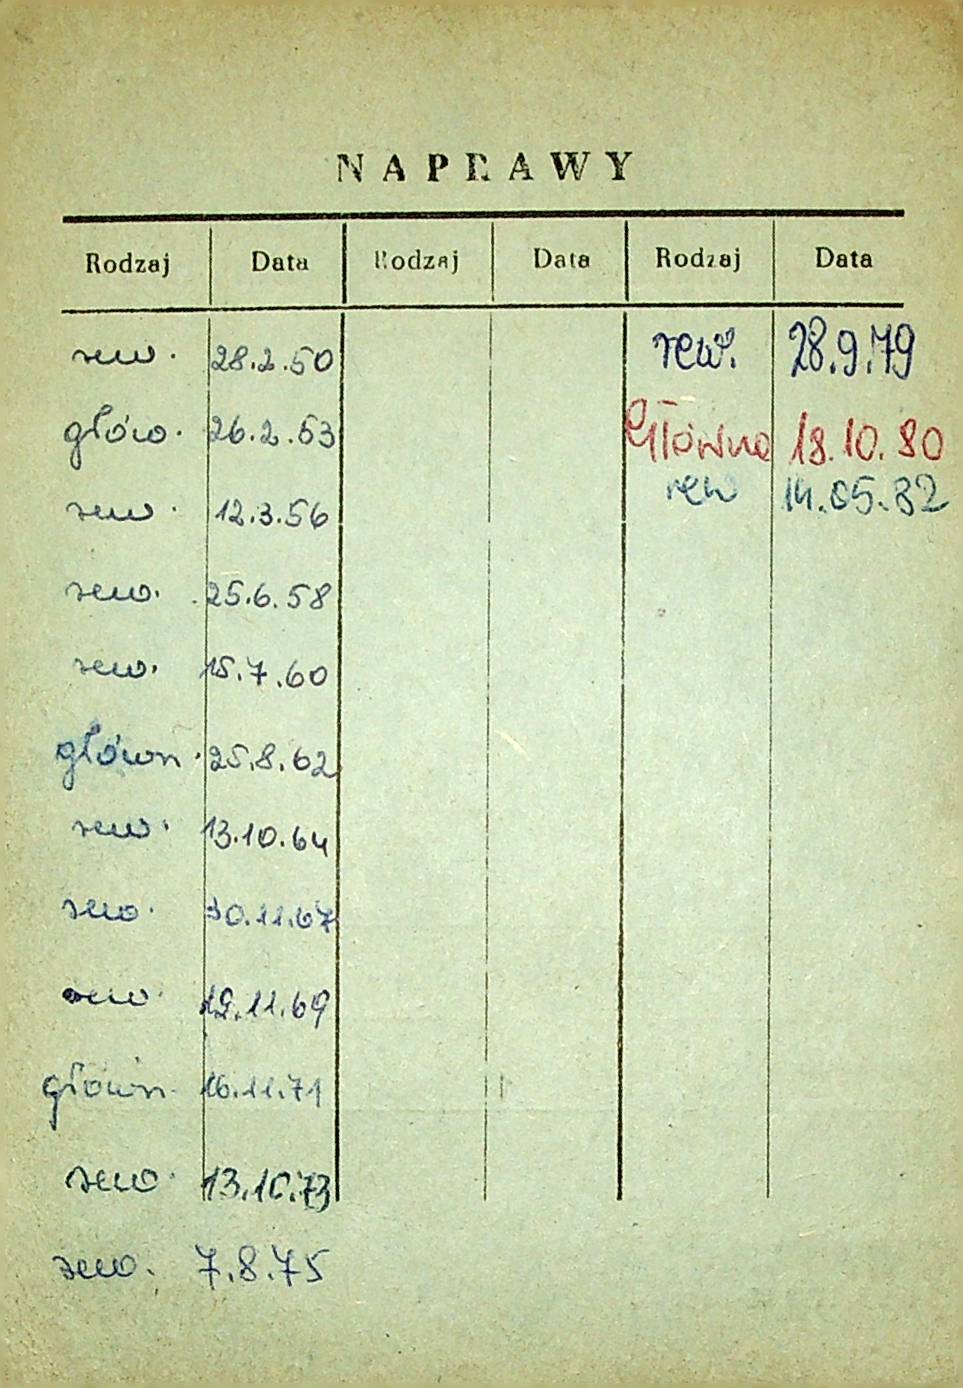 NAPRAWY
Rodzaj Data Rodzaj Data Rodzaj Data
rew. 28.2.50 rew. 28.9.79
głów. 26.2.53 Główna 18.10.80
rew. 12.3.56 rew 14.05.82
rew. 25.6.58
rew. 15.7.60
główn. 25.8.62
rew. 13.10.64
rew. 30.11.67
rew. 19.11.69
główn. 16.11.71
rew. 13.10.73
rew. 7.8.75